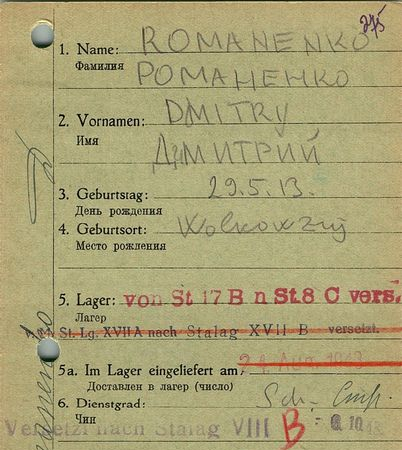 275
1. Name: ROMANENKO
Фамилия РОМАНЕНКО
2. Vornamen: DMITRY
Имя ДМИТРИЙ
3. Geburtstag: 29.5.13.
День рождения
4. Geburtsort: Wolkowzij
Место рожления
5. Lager: von St 17 B n St. 8 C vers.
Лагер
St. Lg. XVII A nach Stalag XVII B versetzt.
5a. Im Lager eingeliefert am: 24. Aug. 1943
Доставлен в лагер (число)
6. Dienstgrad:
Чин
Versetzt nach Stalag VIII B